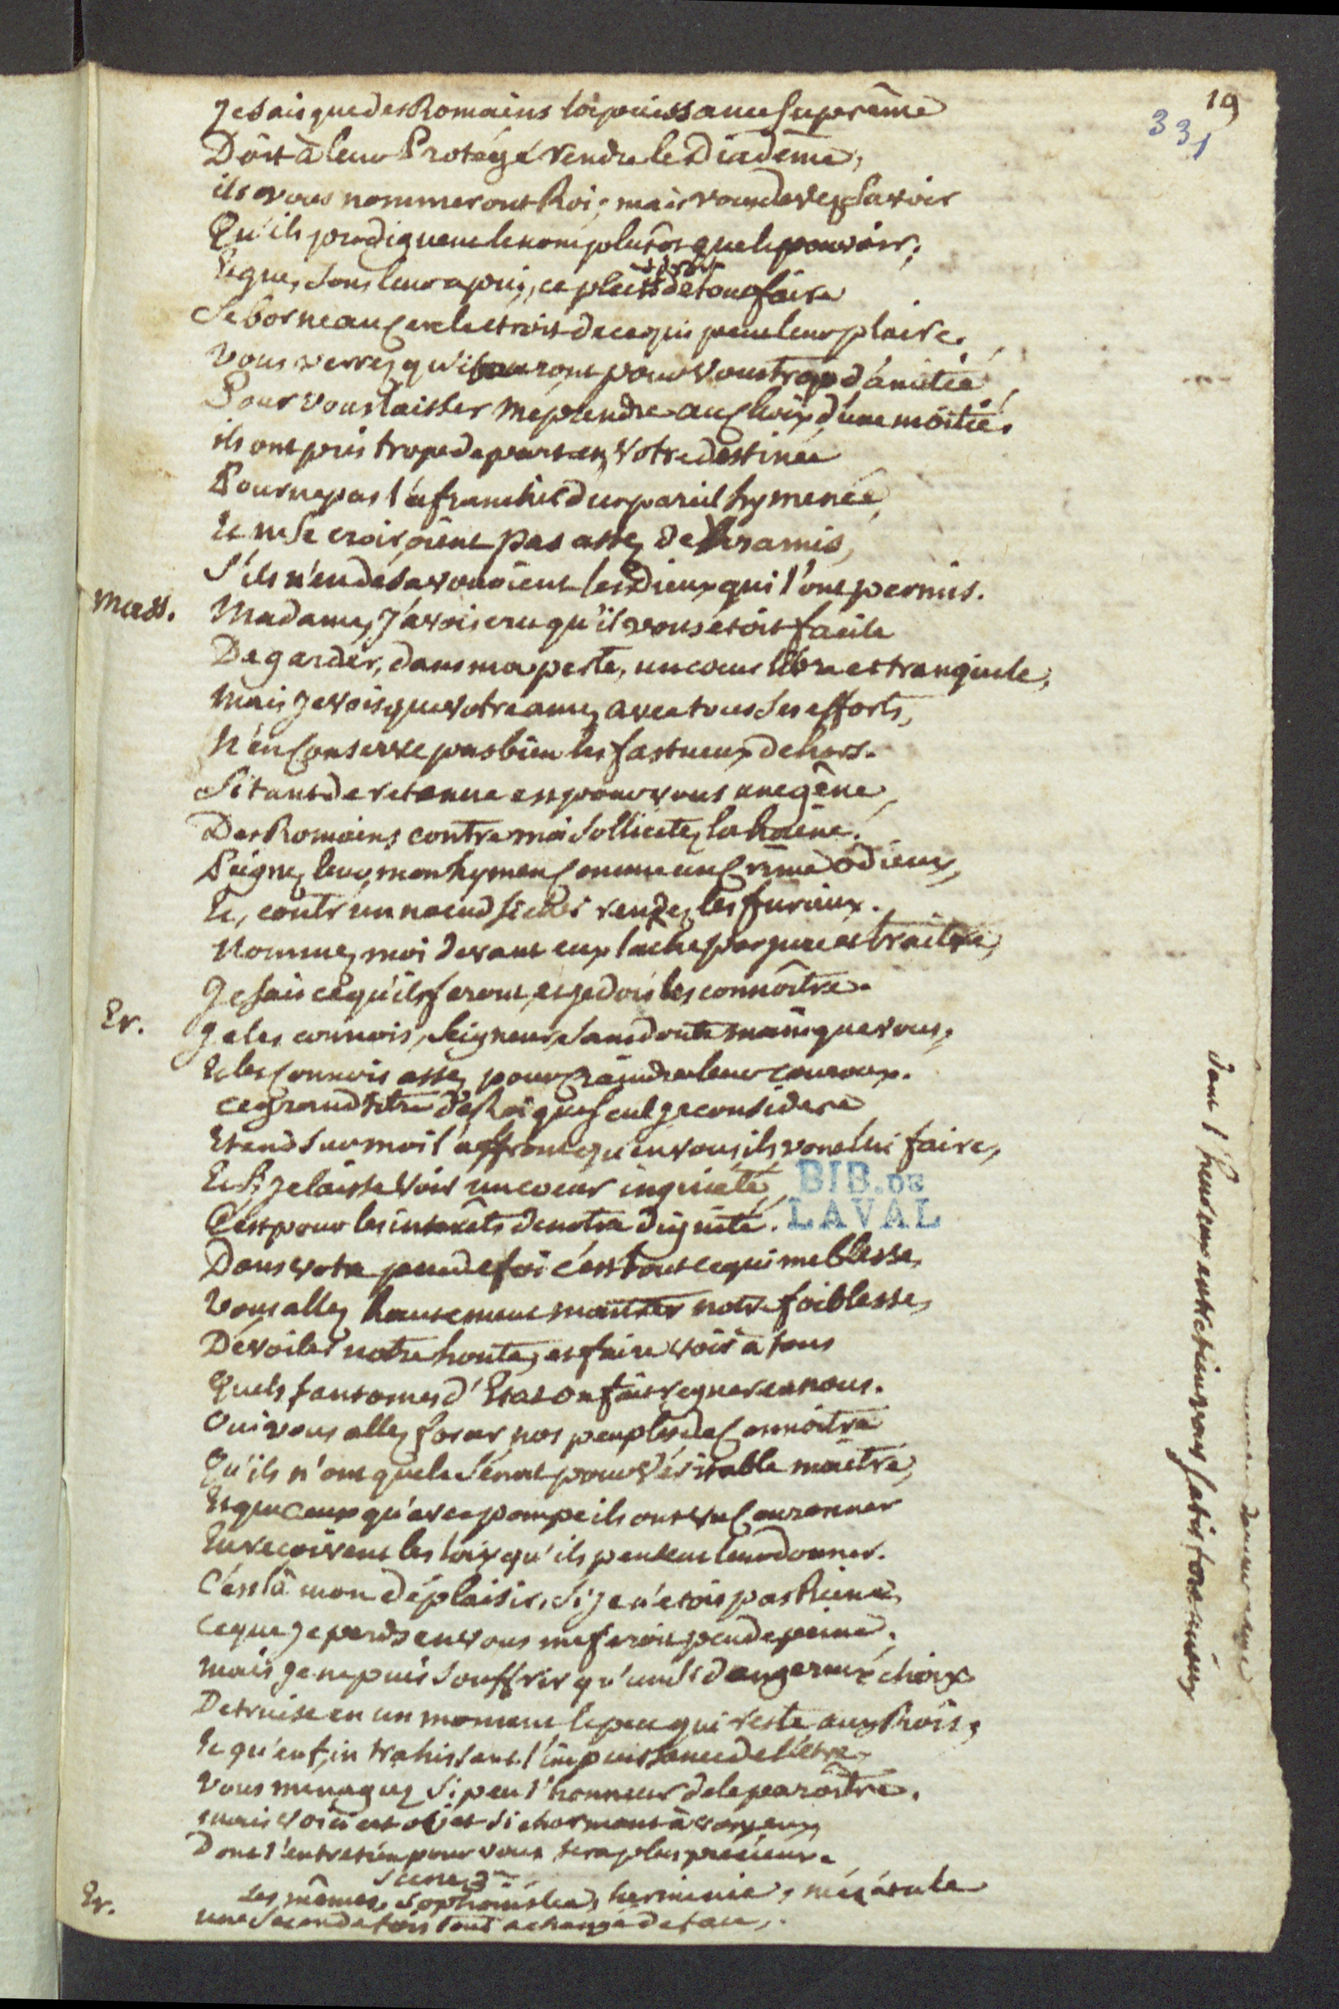 19
331
Je sais que des Romains la puissance suprême
Doit à leur Protégé rendre le Diadême,
ils vous nommeront Roi; mais vous devez savoir
Qu'ils prodiguent le nom plutôt que le pouvoir;
Et que, sous leur apui, ce plein droit de tout faire
Se borne au cercle etroit de ce qui peut leur plaire.
Vous verrez qu'ils auront pour vous trop d'amitié,
Pour vous laisser méprendre au choix d'une moitié.
ils ont pris trop de part en votre destinée
Pour ne pas l'afranchir d'un pareil hymenée,
Et ne se croiroient pas assez de vos amis,
S'ils n'en desavouoient les Dieux qui l'ont permis.
Mass. Madame, j'avois cru qu'il vous etoit facile
De garder, dans ma perte, un coeur libre et tranquile,
Mais je vois que votre ame, avec tous ses efforts,
N'en conserve pas bien les fastueux dehors.
Si tant de retenue est pour vous une gêne,
Des Romains contre moi sollicitez la haine.
Peignez leur mon hymen comme un crime odieux,
Et, contr'un noeud si cher rendez les furieux.
Nommez moi devant eux lâche parjure et traître,
Je sais ce qu'ils feront, et je dois les connoître.
Er. Je les connois, Seigneur, sans doute moins que vous,
Et les connois assez pour craindre leur couroux.
Ce grand titre de Roi que seul je considere
Etend sur moi l'affront qu'en vous ils vont lui faire,
Et si je laisse voir un coeur inquieté,
C'est pour les interêts de notre dignité.
BIB. DE
LAVAL
Dans votre peu de foi c'est tout ce qui me blesse,
Vous allez hautement montrer notre foiblesse,
Dévoiler notre honte, et faire voir à tous
Quels fantomes d'Etat on fait regner en nous.
Oui vous allez forcer nos peuples de connoître
Qu'ils n'ont que le Senat pour véritable maître,
Et que ceux qu'avec pompe ils ont vu couronner
En reçoivent les loix qu'ils pensent leur donner.
C'est là mon déplaisir. Si je n'etois pas Reine,
Ce que je perds en vous me feroit peu de peine,
Mais je ne puis souffrir qu'un si dangereux choix
Detruise en un moment le peu qui reste aux Rois,
Et qu'enfin trahissant l'impuissance de l'être,
Vous menagiez si peu l'honneur de le paroître.
mais voici cet objet si charmant à vos yeux,
Dont l'entretien pour vous sera plus précieux.
Scene 3e
Les mêmes, Sophonisbe, herminie, mézétule
Er. une seconde fois tout a changé de face,
dont l'heureux entretien vous satisfora mieux